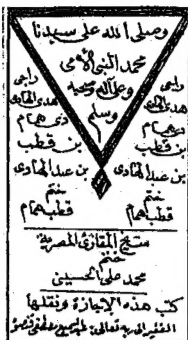 وصلى الله على سيدنا
محمد النبي الأمي
وعلى آله وصحبه
وسلم
راجى
هدى الهادى
دى همام
بن قطب
بن عبد الهادى
ختم
قطب همام
راجى
هدى الهادى
دى همام
بن قطب
بن عبد الهادى
ختم
قطب همام
شيخ المقارئ المصرية
ختم
محمد على الحسينى
كتب هذه الإجازة ونقلها
الفقير إلى ربه تعالى